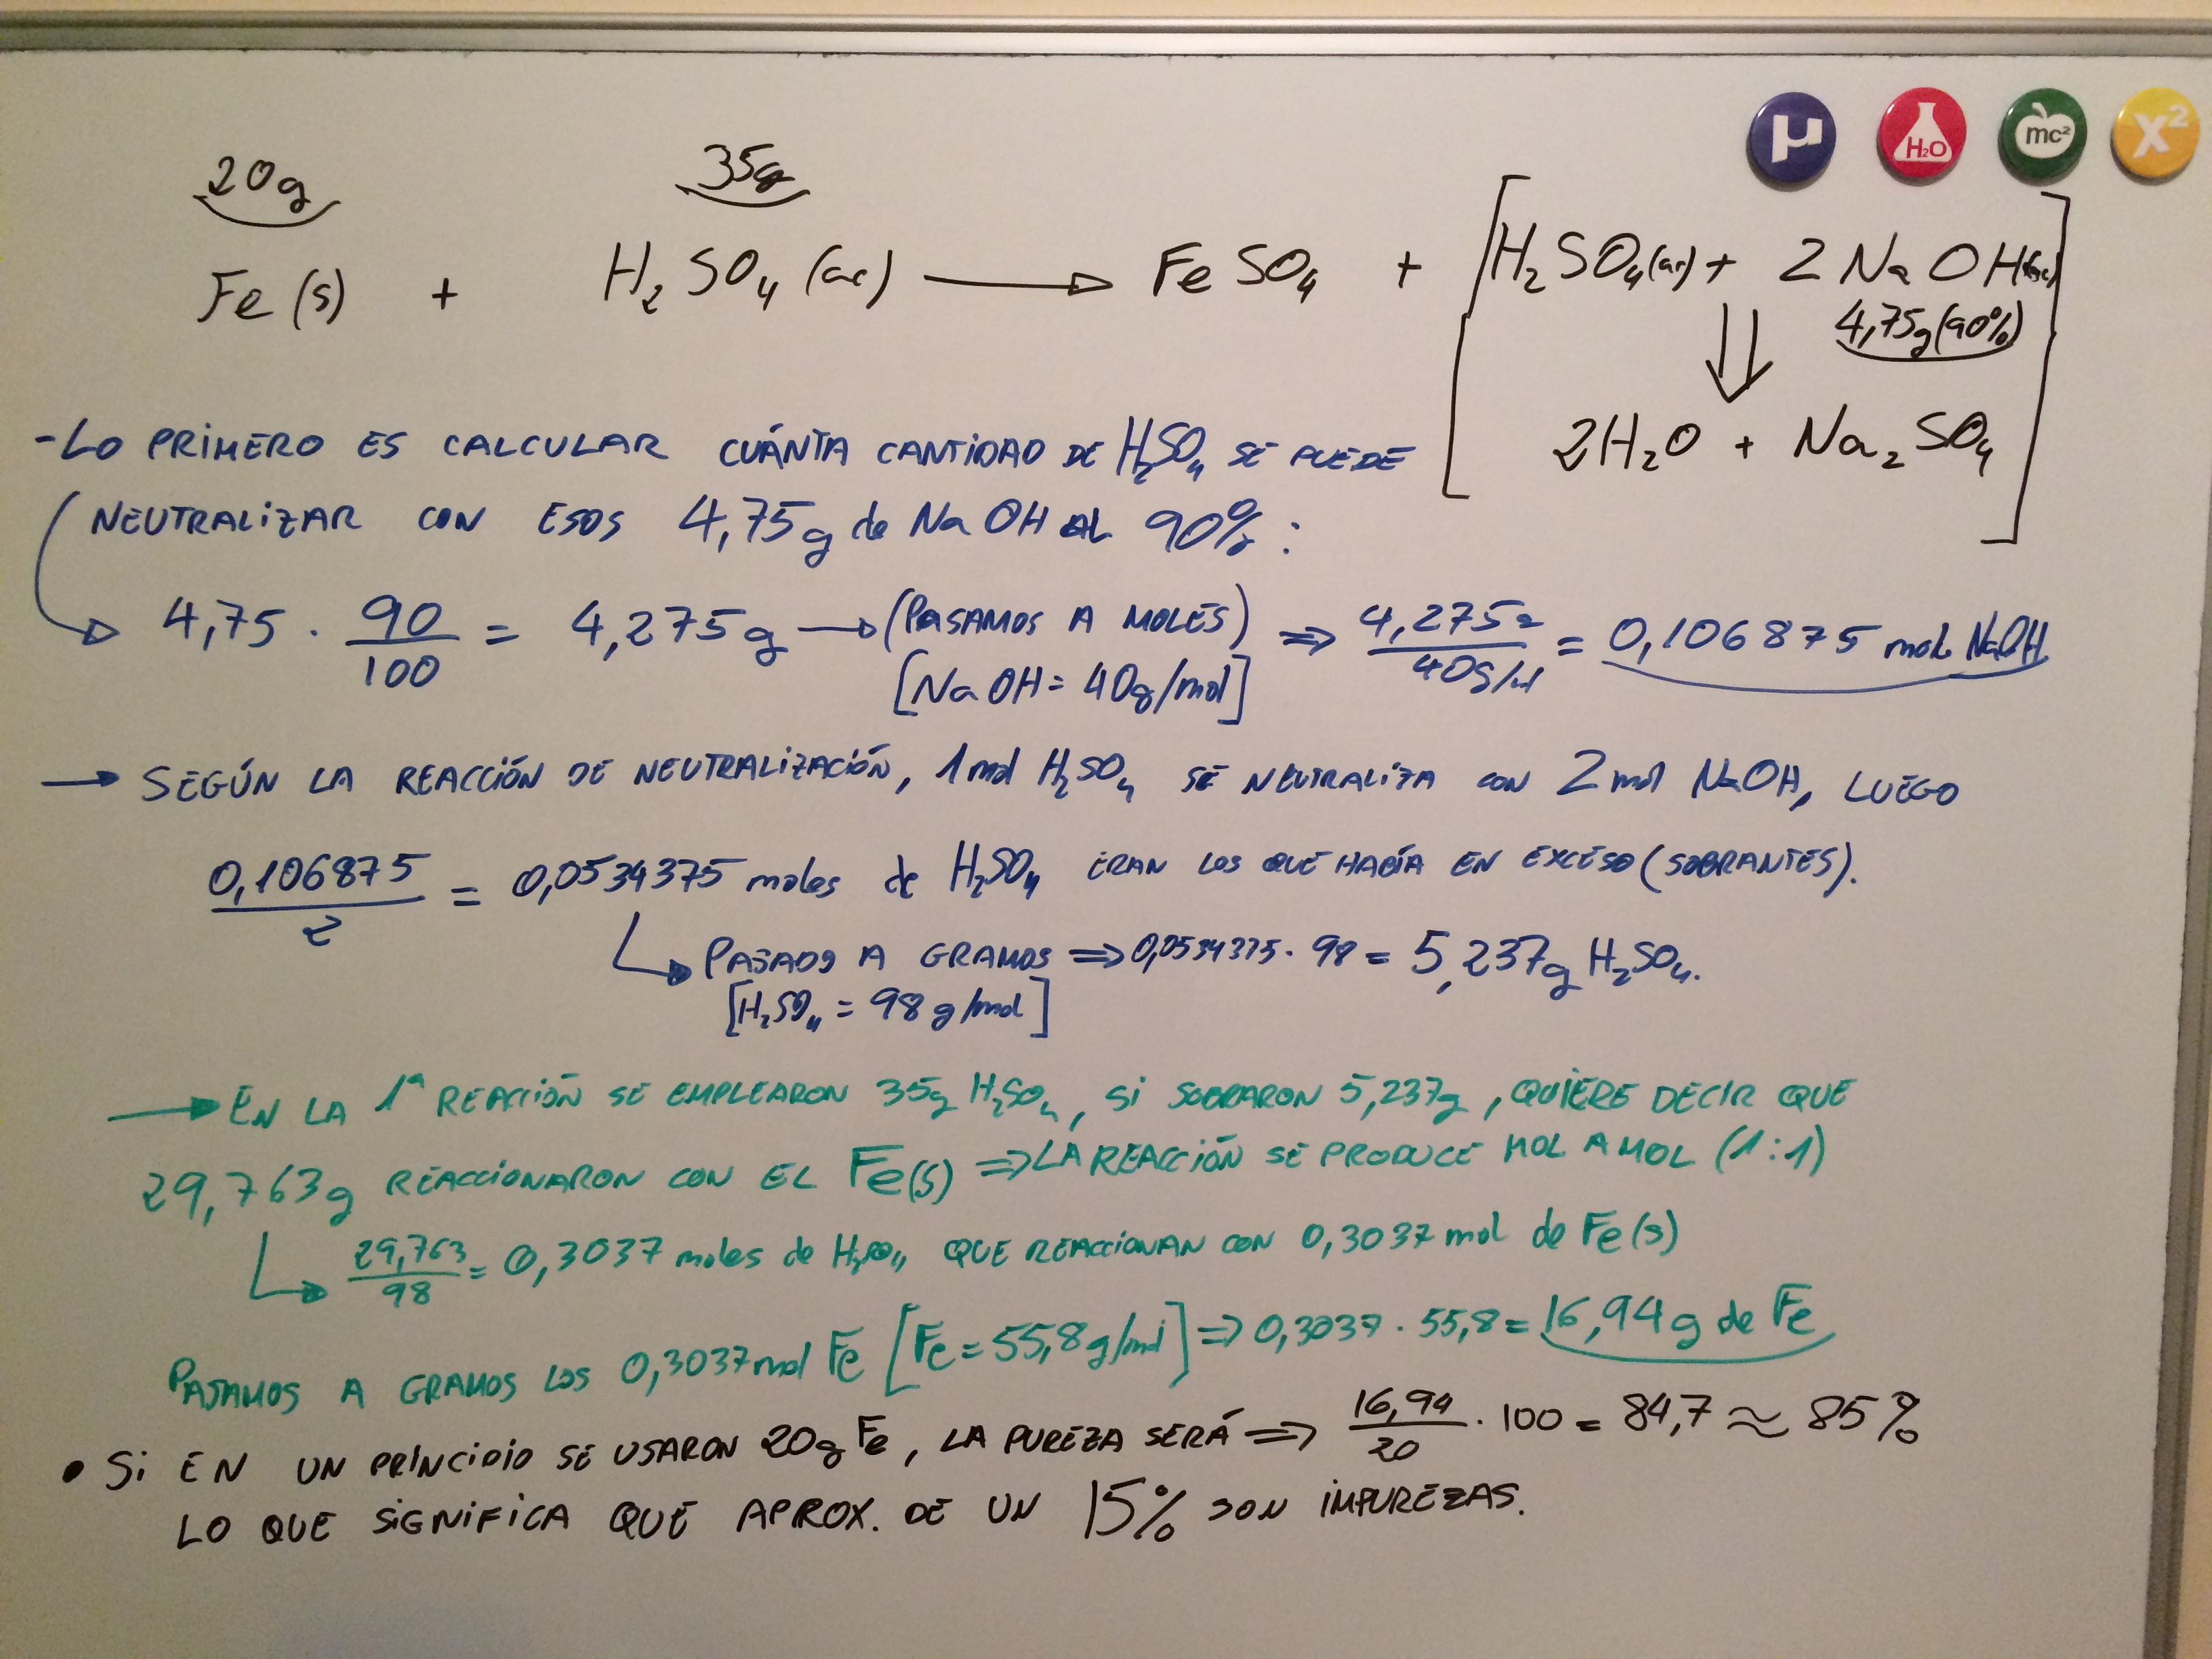 μ H₂O mc² x²
20g 35g
Fe (s) + H₂SO₄ (ac) → FeSO₄ + [H₂SO₄(ac) + 2NaOH(ac)
4,75g (90%)
⇓
2H₂O + Na₂SO₄]
- LO PRIMERO ES CALCULAR CUÁNTA CANTIDAD DE H₂SO₄ SE PUEDE
NEUTRALIZAR CON ESOS 4,75g de NaOH AL 90%:
→ 4,75 · 90/100 = 4,275g → (PASAMOS A MOLES) ⇒ 4,275g/40g/mol = 0,106875 mol NaOH
[NaOH = 40g/mol]
→ SEGÚN LA REACCIÓN DE NEUTRALIZACIÓN, 1 mol H₂SO₄ SE NEUTRALIZA CON 2 mol NaOH, LUEGO
0,106875/2 = 0,0534375 moles de H₂SO₄ ERAN LOS QUE HABÍA EN EXCESO (SOBRANTES).
↳ PASADO A GRAMOS ⇒ 0,0534375 · 98 = 5,237g H₂SO₄.
[H₂SO₄ = 98 g/mol]
→ EN LA 1ª REACCIÓN SE EMPLEARON 35g H₂SO₄, SI SOBRARON 5,237g, QUIERE DECIR QUE
29,763g REACCIONARON CON EL Fe(s) ⇒ LA REACCIÓN SE PRODUCE MOL A MOL (1:1)
↳ 29,763/98 = 0,3037 moles de H₂SO₄, QUE REACCIONAN CON 0,3037 mol de Fe(s)
PASAMOS A GRAMOS LOS 0,3037 mol Fe [Fe = 55,8g/mol] ⇒ 0,3037 · 55,8 = 16,94g de Fe
• SI EN UN PRINCIPIO SE USARON 20g Fe, LA PUREZA SERÁ ⇒ 16,94/20 · 100 = 84,7 ≈ 85%
LO QUE SIGNIFICA QUE APROX. DE UN 15% SON IMPUREZAS.